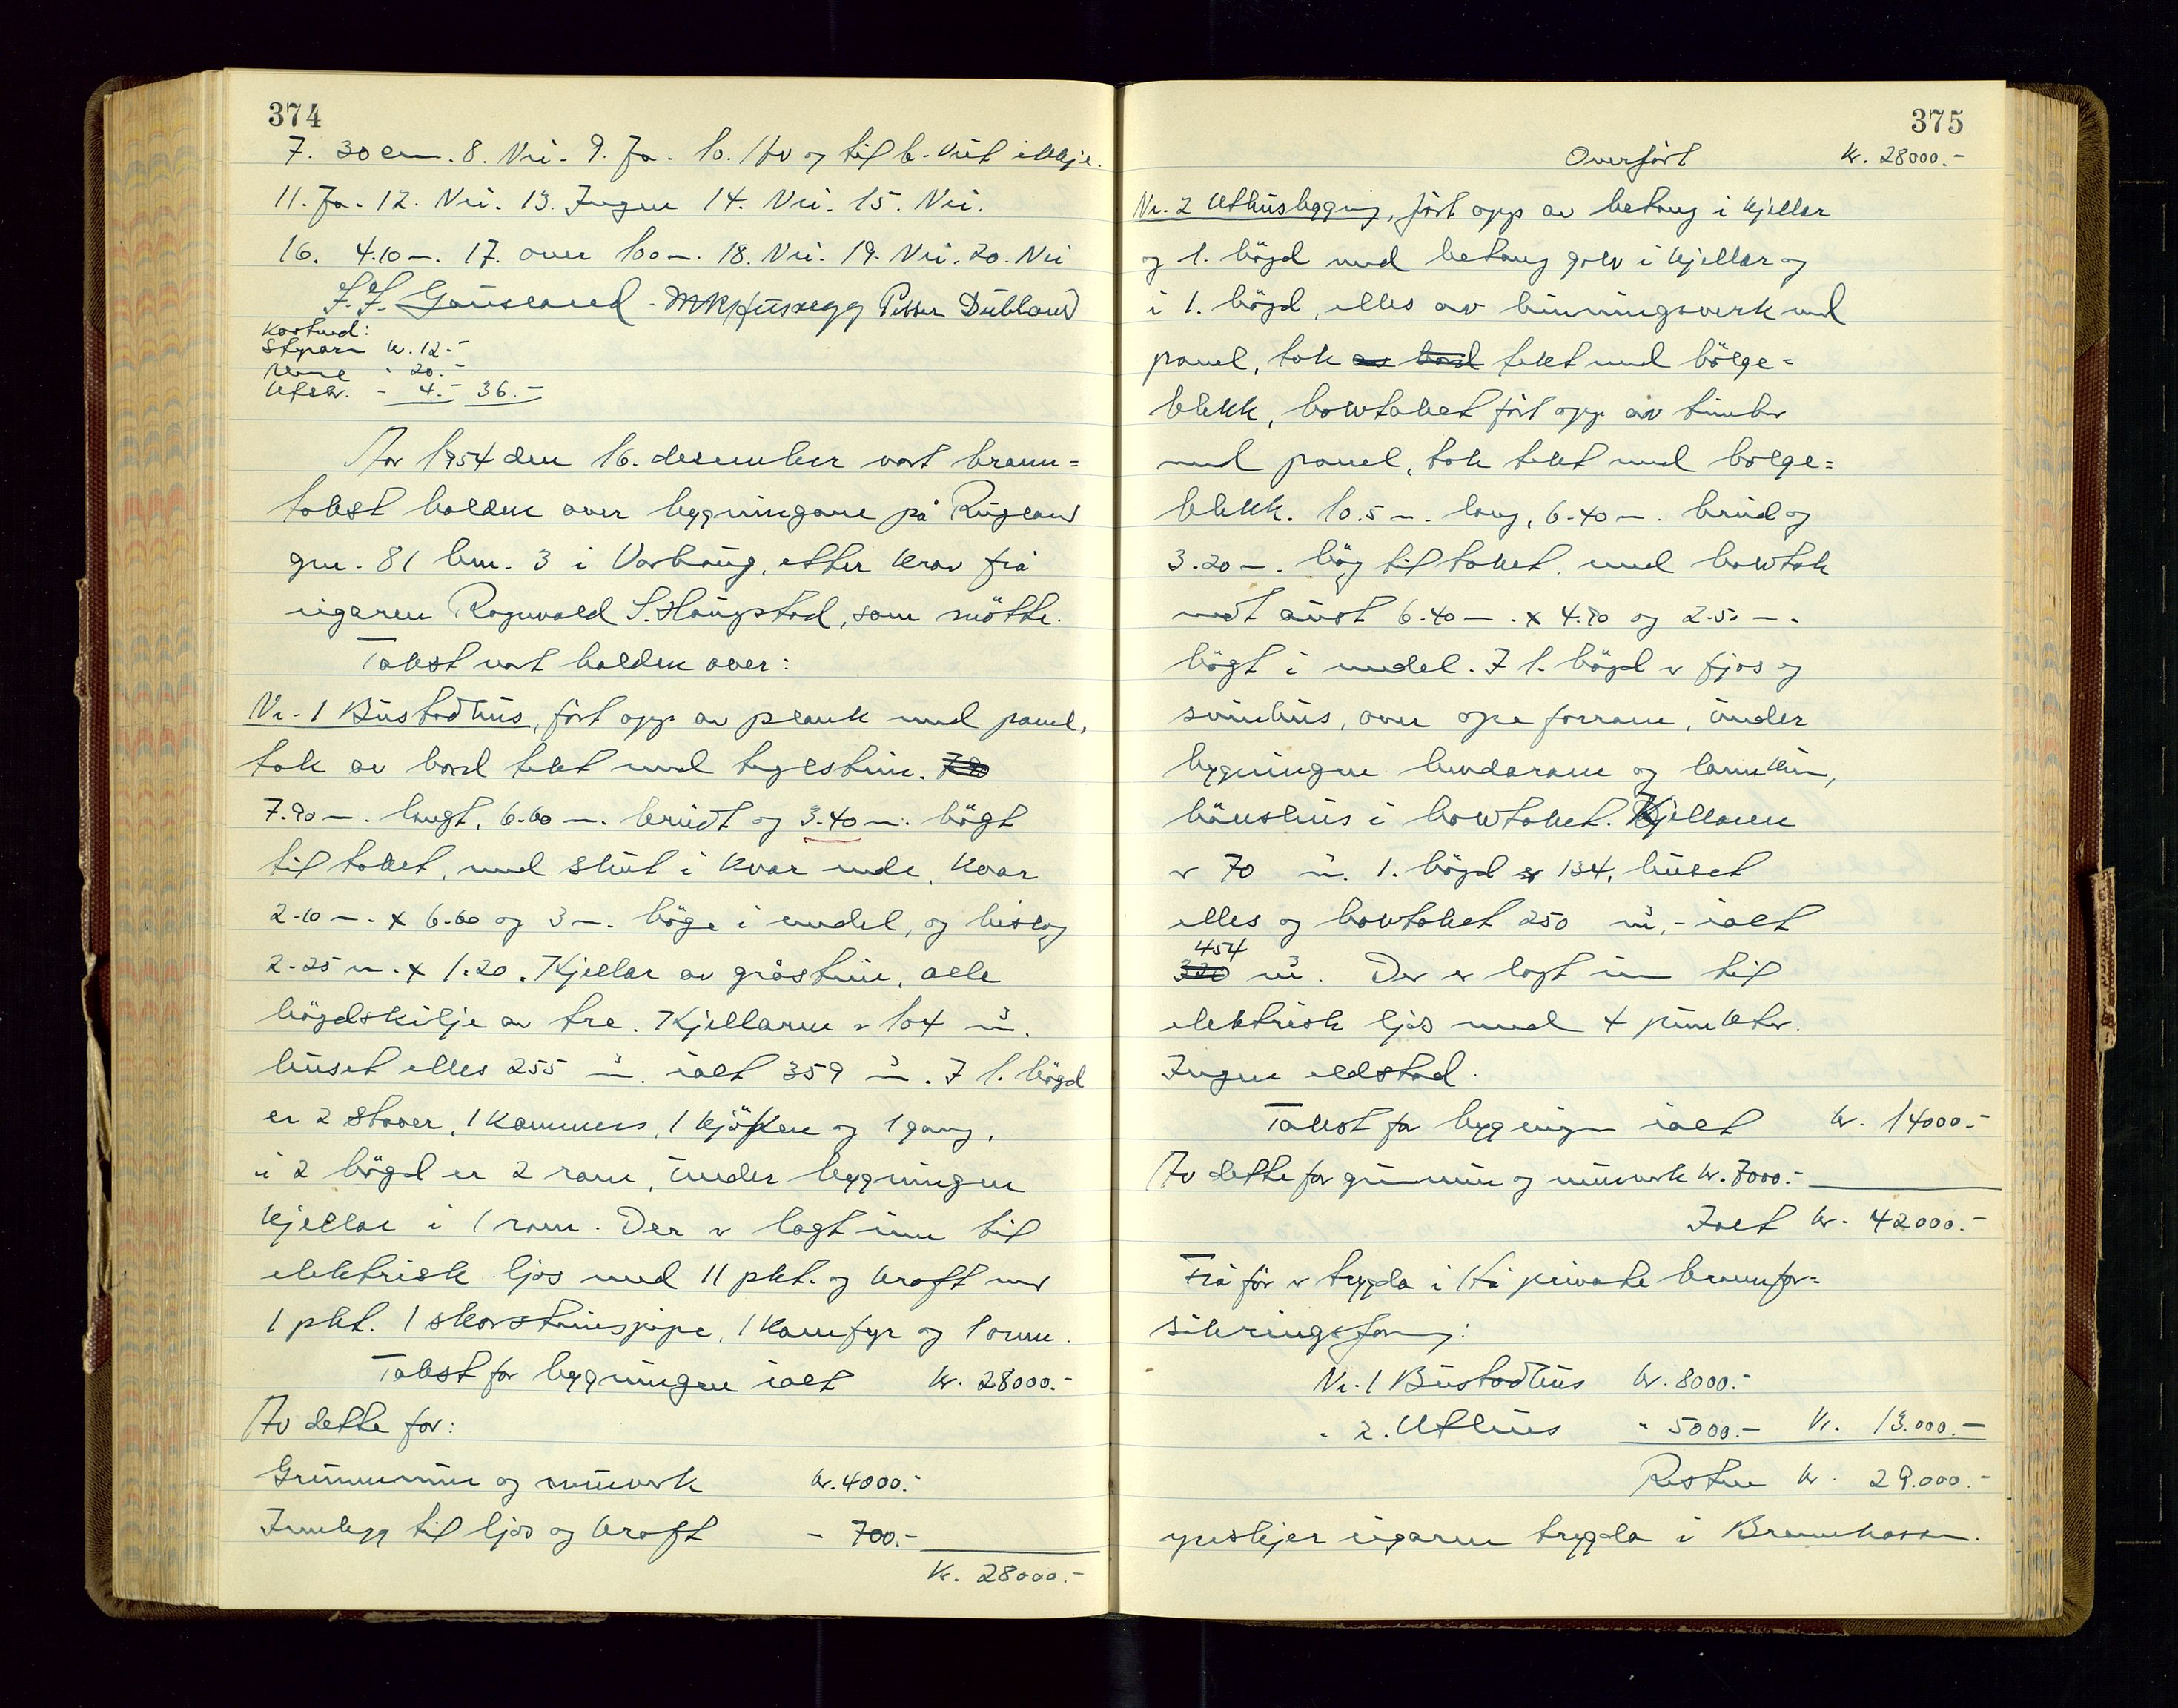 374
7. 30 cm. 8. Nei. 9. Ja. 10. Av og til b. vist ikkje.
11. Ja. 12. Nei. 13. Ingen 14. Nei. 15. Nei.
16. 4.10 m. 17. over 100 m. 18. Nei. 19. Nei. 20. Nei
J. J. Gauseland - MKHusvegg Petter Dubland
Kostnad:
Styrarn kr. 12.-
" 20.-
Utskr. - 4.- 36.-
Aar 1954 den 16. desember vart brann=
takst halden over bygningane på Rugland
gnr. 81 bnr. 3 i Varhaug, etter krav frå
eigaren Ragnvald S. Haugstad, som møtte.
Takst vart halden over:
Nr. 1 Bustadhus, ført opp av plank med panel,
tak av bord tekt med teglstein. 7.90
7.90 m. langt, 6.60 m. breidt og 3.40 m. høgt
til taket, med skut i kvar ende, kvar
2.10 m. x 6.60 og 3 m. høge i medel, og bislag
2.25 m. x 1.20. Kjellar av gråstein, alle
høgdskilje av tre. Kjellaren er 104 m³.
huset elles 255 m³. ialt 359 m³. I 1. høgd
er 2 stover, 1 kammers, 1 kjøken og 1 gang,
i 2 høgd er 2 rom, under bygningen
kjellar i 1 rom. Der er lagt inn til
elektrisk ljos med 11 pkt. og kraft med
1 pkt. 1 skorsteinspipe, 1 komfyr og 1 omn.
Takst for bygningen ialt kr. 28000.-
Av dette for:
Grunnmur og murverk kr. 4000.-
Innlegg til ljos og kraft - 700.-
Kr. 28000.-
375
Overført kr. 28000.-
Nr. 2 Uthusbygning, ført opp av betong i kjellar
og 1. høgd med betong golv i kjellar og
i 1. høgd, elles av binningsverk med
panel, tak av bord tekt med bølge=
blekk, halvtaket ført opp av timber
med panel, tak tekt med bølge=
blekk. 10.5 m. lang, 6.40 m. breid og
3.20 m. høg til taket, med halvtak
mot aust 6.40 m. x 4.90 og 2.50 m.
høgt i medel. I 1. høgd er fjos og
svinehus, over ope forrom, under
bygningen landarom og lannkum,
hønshus i halvtaket. Kjellaren
er 70 m³. 1. høgd er 134, huset
elles og halvtaket 250 m³, - ialt
454
320 m³. Der er lagt inn til
elektrisk ljos med 4 punkter.
Ingen eldstad.
Takst for bygningen ialt kr. 14000.-
Av dette for grunnmur og murverk kr. 7000.-
Ialt kr. 42000.-
Frå før er trygda i Hå private brannfor=
sikringsforening:
Nr. 1 Bustadhus kr. 8000.-
" 2. Uthus " 5000.- Kr. 13.000.-
Resten kr. 29.000.-
ynskjer eigaren trygda i Brannkassen.